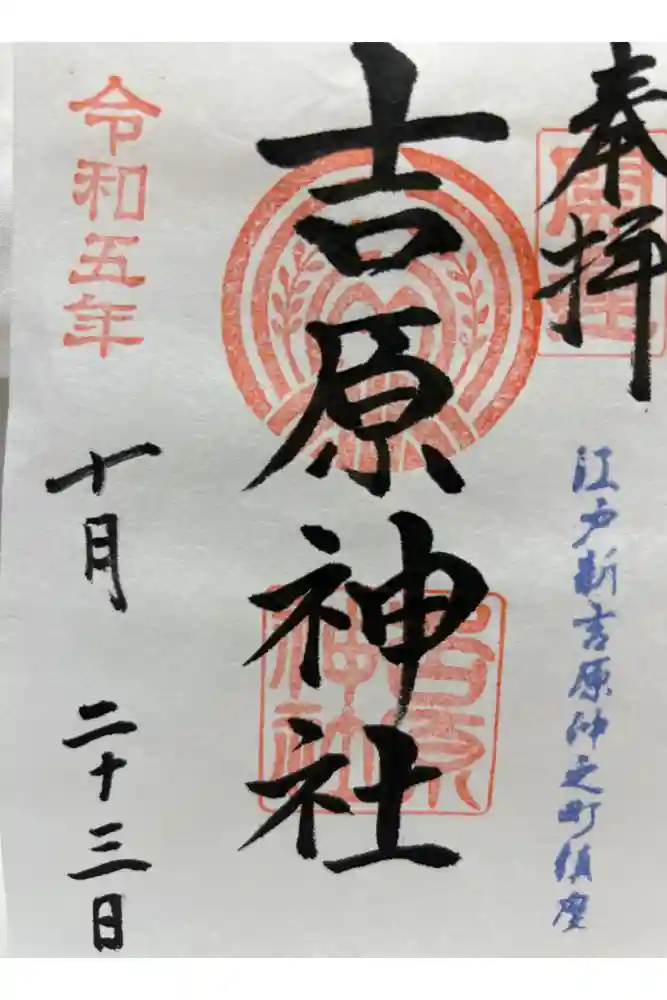 奉拝
開運
江戸新吉原仲之町鎮座
吉原神社
吉原
神社
令和五年
十月 二十三日